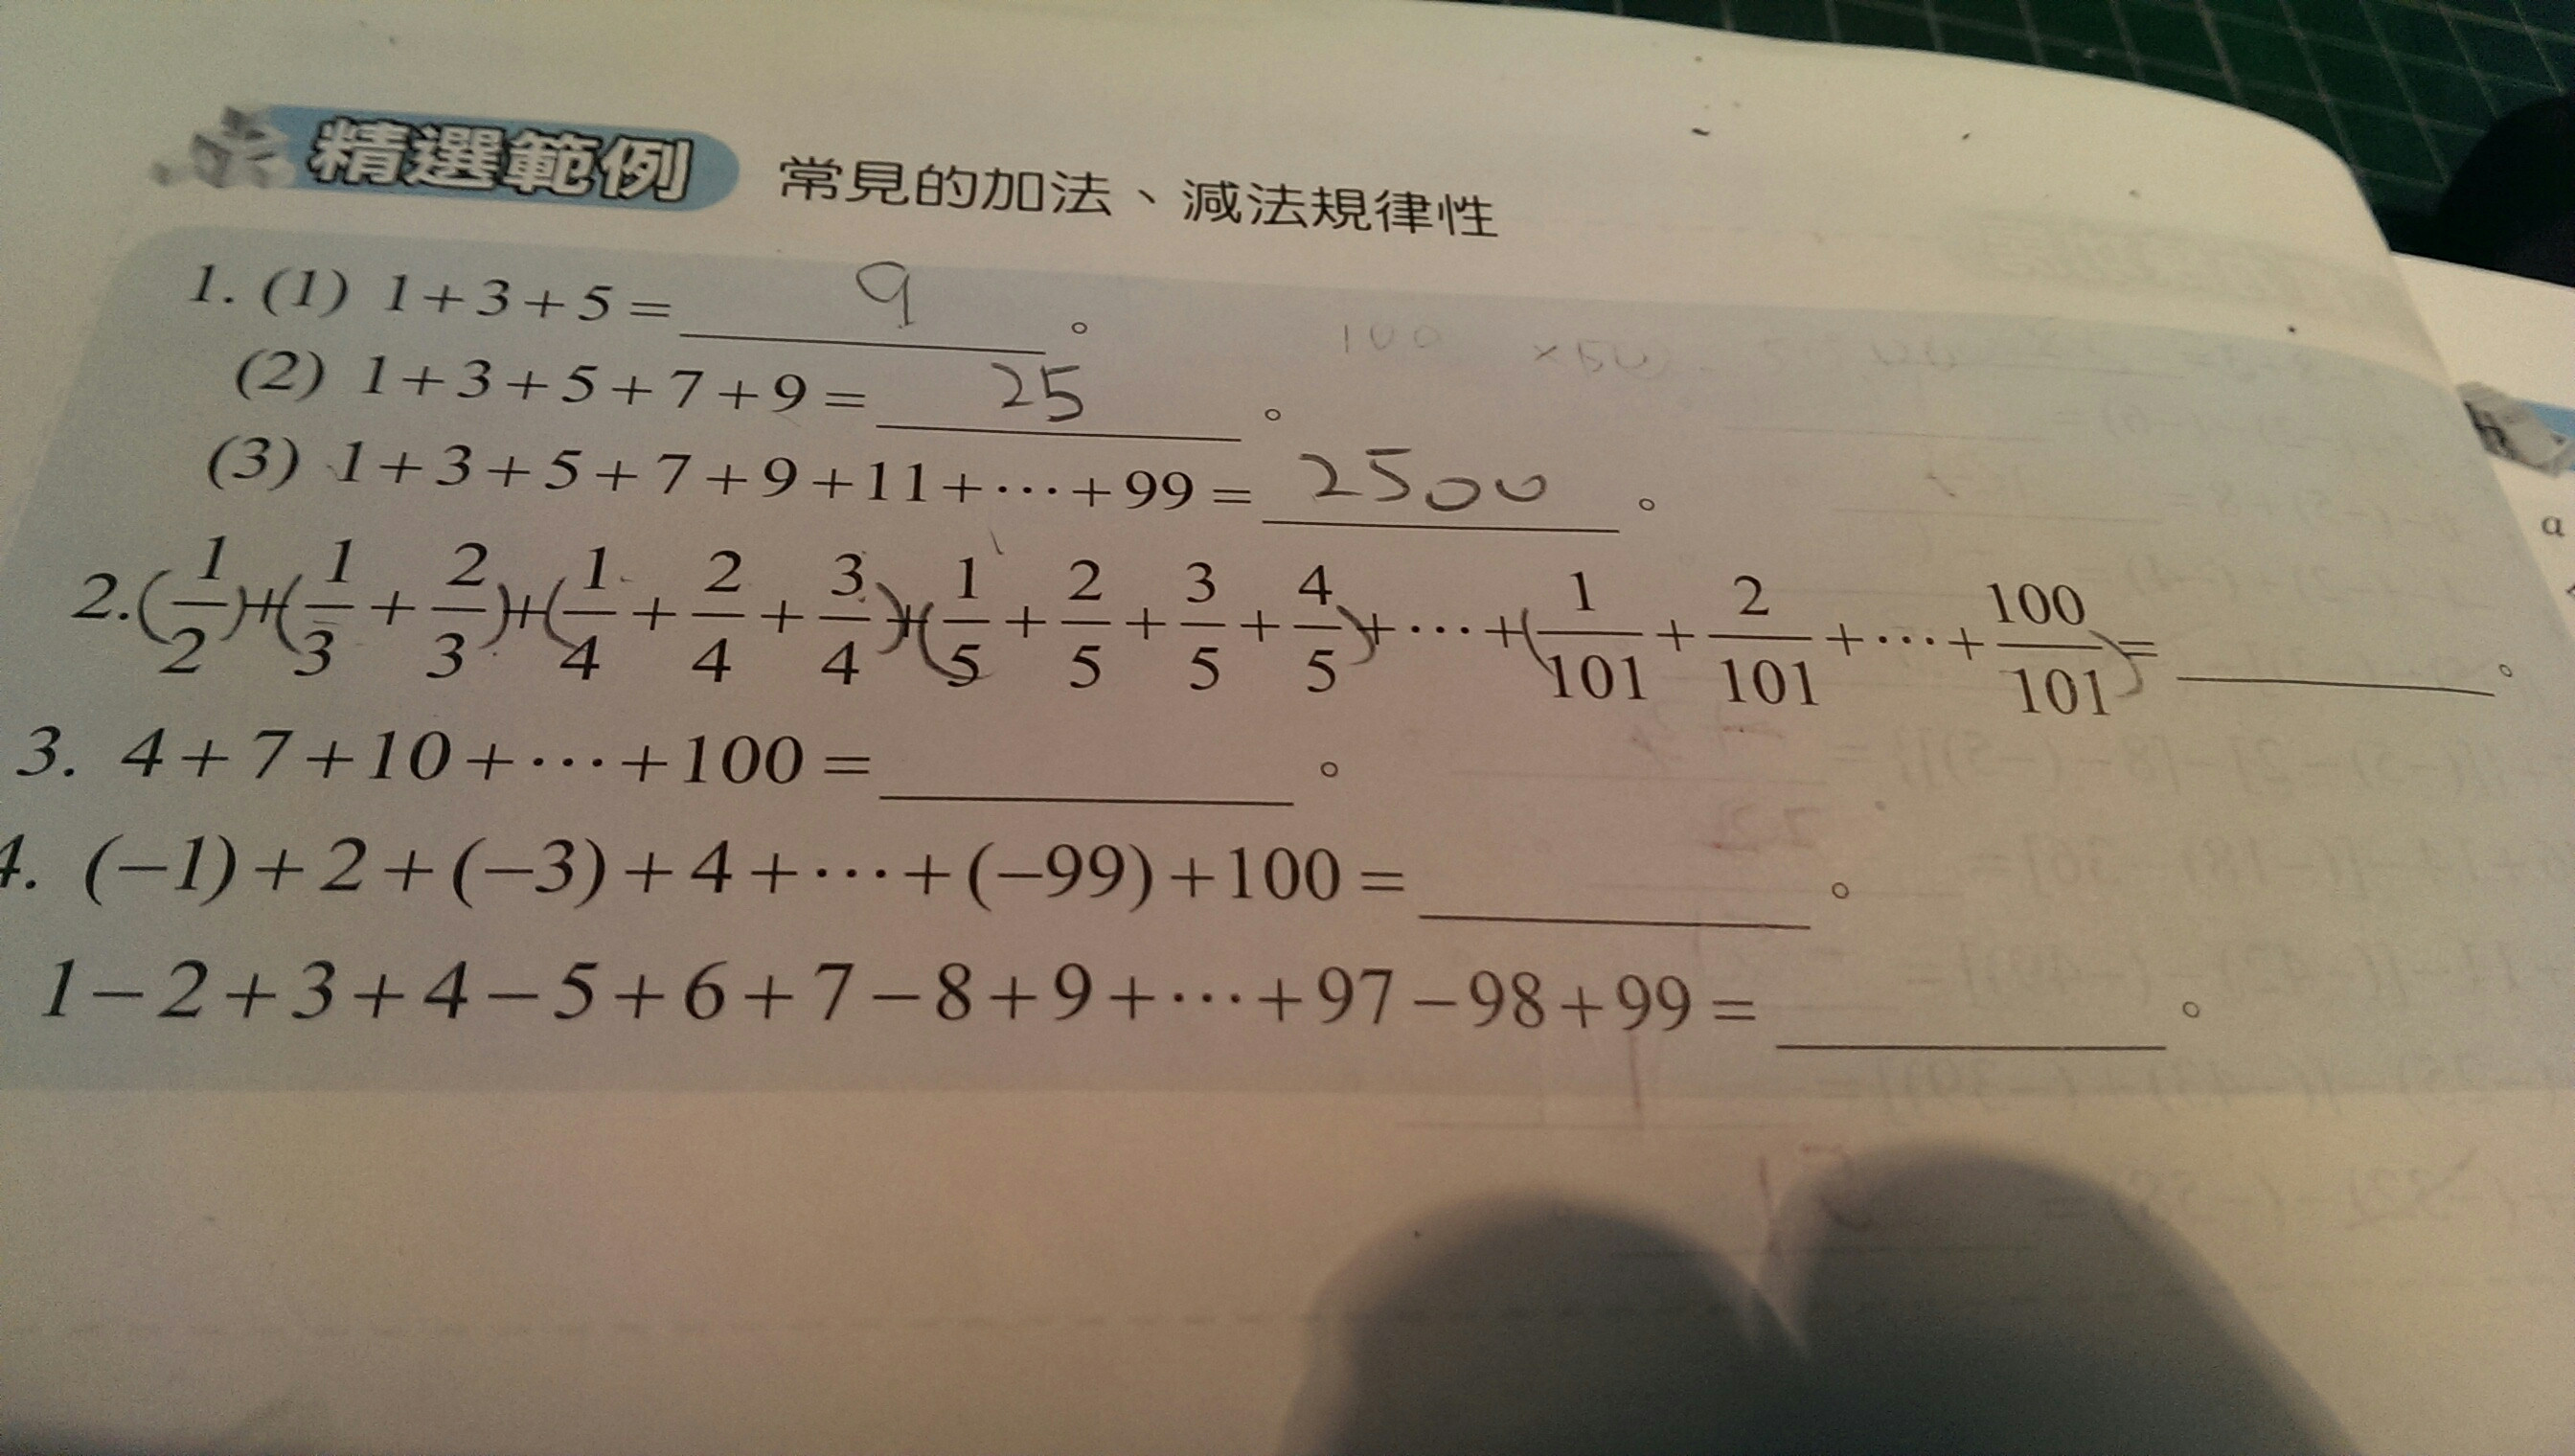 精選範例 常見的加法、減法規律性
1. (1) 1+3+5= 9 。
(2) 1+3+5+7+9= 25 。
(3) 1+3+5+7+9+11+⋯+99= 2500 。
2. (1/2)+(1/3+2/3)+(1/4+2/4+3/4)+(1/5+2/5+3/5+4/5)+⋯+(1/101+2/101+⋯+100/101)= ______ 。
3. 4+7+10+⋯+100= ______ 。
4. (−1)+2+(−3)+4+⋯+(−99)+100= ______ 。
1−2+3+4−5+6+7−8+9+⋯+97−98+99= ______ 。
a